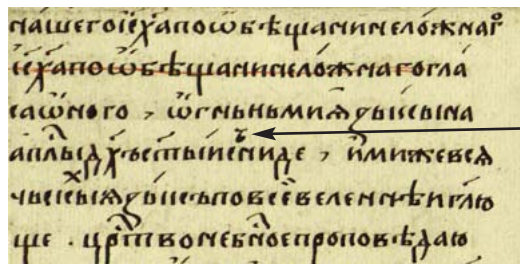 нашего і҃с х҃а по ѡбѣщании неложнаго
і҃с х҃а по ѡбѣщании неложнаго гла
са ѡного , ѡгньньми ꙗзыкы сы на
ап҃лы д҃хъ ст҃ыи съниде , имиже всѧ
чьскыꙗ ꙗзыкъ по всеи вселеннѣи гл҃ю
ще . цр҃тво нб҃ное проповѣдаю